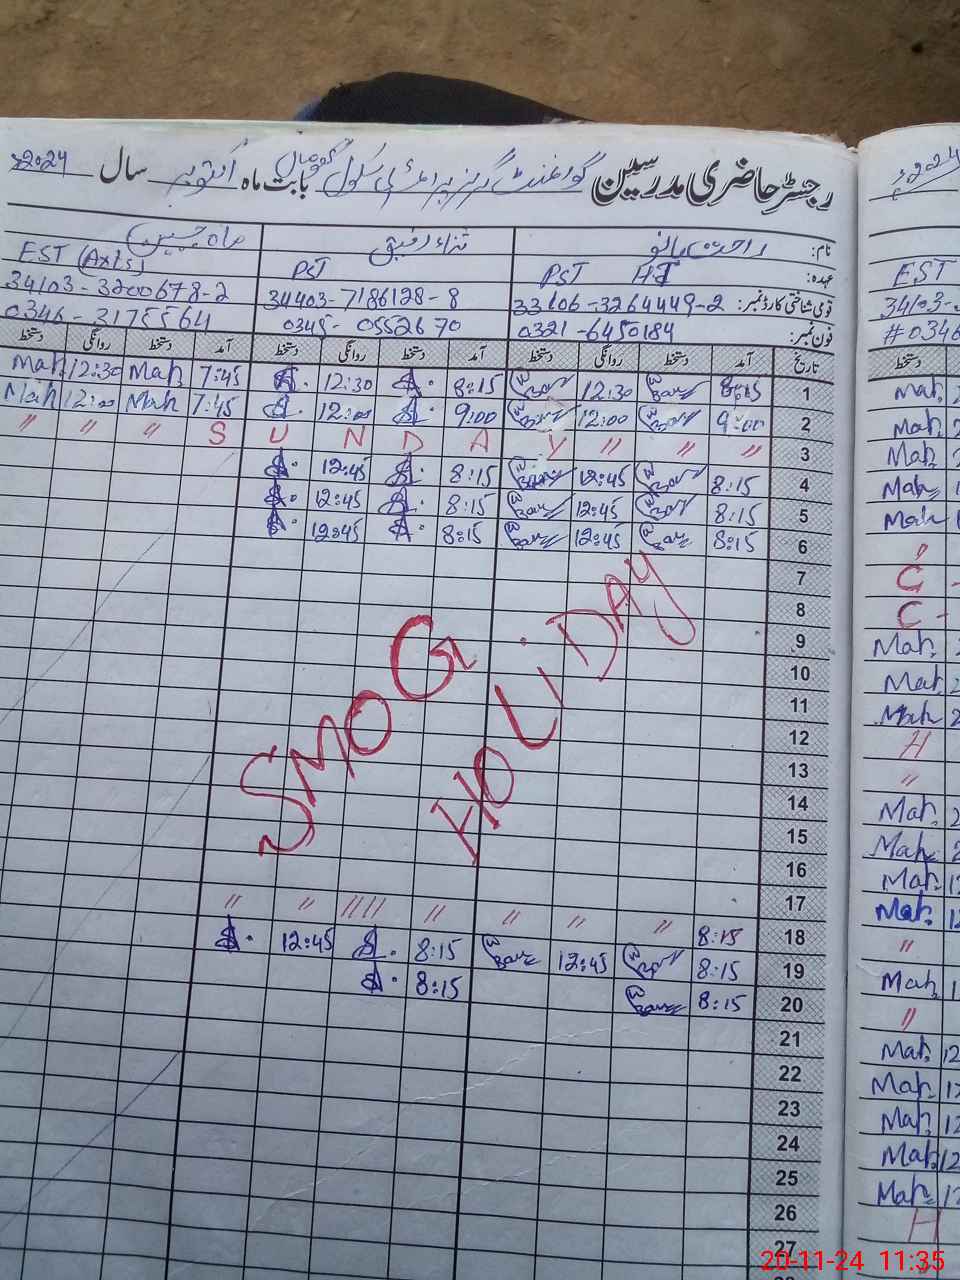 رجسٹر حاضری مدرسین گورنمنٹ گرلز پرائمری سکول بابت ماہ اکتوبر سال 2024ء
نام: راحت بانو ثناء رفیق ماہ جبین
عہدہ: PST HT PST EST (Arts)
قومی شناختی کارڈ نمبر: 33106-3264449-2 34403-7186128-8 34103-3200678-2
فون نمبر: 0321-6450184 0345-0552670 0346-3175564
تاریخ آمد دستخط روانگی دستخط آمد دستخط روانگی دستخط آمد دستخط روانگی دستخط
1 8:15 12:30 8:15 12:30 7:45 Mah 12:30 Mah
2 9:00 12:00 9:00 12:00 7:45 Mah 12:00 Mah
3 " " " S U N D A Y " " "
4 8:15 12:45 8:15 12:45
5 8:15 12:45 8:15 12:45
6 8:15 12:45 8:15 12:45
7
8
9
10
11
12
13
14
15
16
17
SMOG HOLIDAY
18 8:15 " " " " " " " "
19 8:15 12:45 8:15 12:45
20 8:15 8:15
21
22
23
24
25
26
27
2024ء
EST
34103-
#0346
دستخط
Mah
Mah
Mah
Mah
Mah
"
C
C
Mah
Mah
Mah
H
"
Mah
Mah
Mah
Mah
"
Mah
"
Mah 12
Mah 12
Mah 12
Mah 12
Mah 12
H
20-11-24 11:35